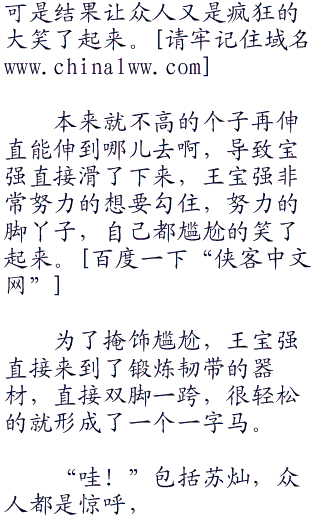 可是结果让众人又是疯狂的
大笑了起来。[请牢记住域名
www.china1ww.com]
本来就不高的个子再伸
直能伸到哪儿去啊，导致宝
强直接滑了下来，王宝强非
常努力的想要勾住，努力的
脚丫子，自己都尴尬的笑了
起来。[百度一下“侠客中文
网”]
为了掩饰尴尬，王宝强
直接来到了锻炼韧带的器
材，直接双脚一跨，很轻松
的就形成了一个一字马。
“哇！”包括苏灿，众
人都是惊呼，